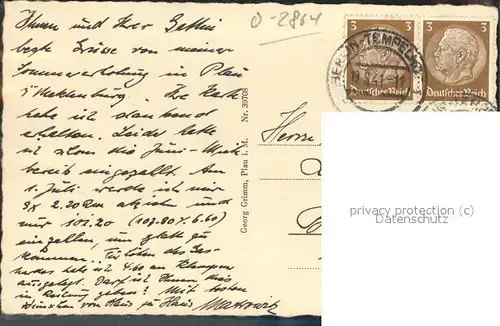 Ihnen und Ihrer Gattin
Grüsse von meiner
Sommererholung in Plau
i/Mecklenburg. Ihre Karte
habe ich dankend
erhalten. Leider hatte
ich schon die Juni-Miete
bereits eingezahlt. Am
1. Juli werde ich mir
3 x 2.20 Rm abziehen und
nur 101.20 (107.80 % 6.60)
einzahlen, um glatt zu
kommen. Für Löten des Gas-
herdes habe ich 4.60 an Klempner
ausgelegt. Darf ich Ihnen dies
in Rechnung geben? Mit besten
Wünschen von Haus zu Haus
0-2864
3
3
Deutsches Reich
Deutsches Reich
BERLIN-TEMPELHOF
Georg Grimm, Plau i. M. Nr. 39708
Herrn
privacy protection (c)
Datenschutz